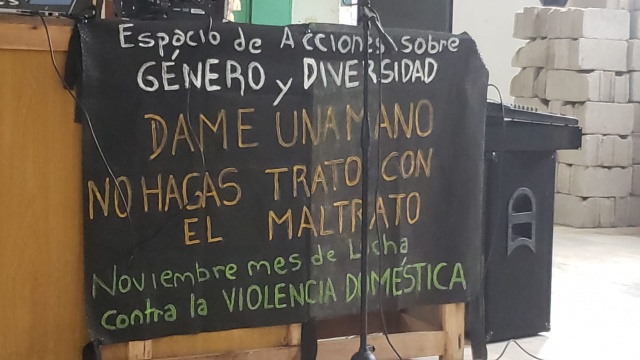 Espacio de Acciones sobre
GÉNERO y DIVERSIDAD
DAME UNA MANO
NO HAGAS TRATO CON
EL MALTRATO
Noviembre mes de Lucha
contra la VIOLENCIA DOMÉSTICA